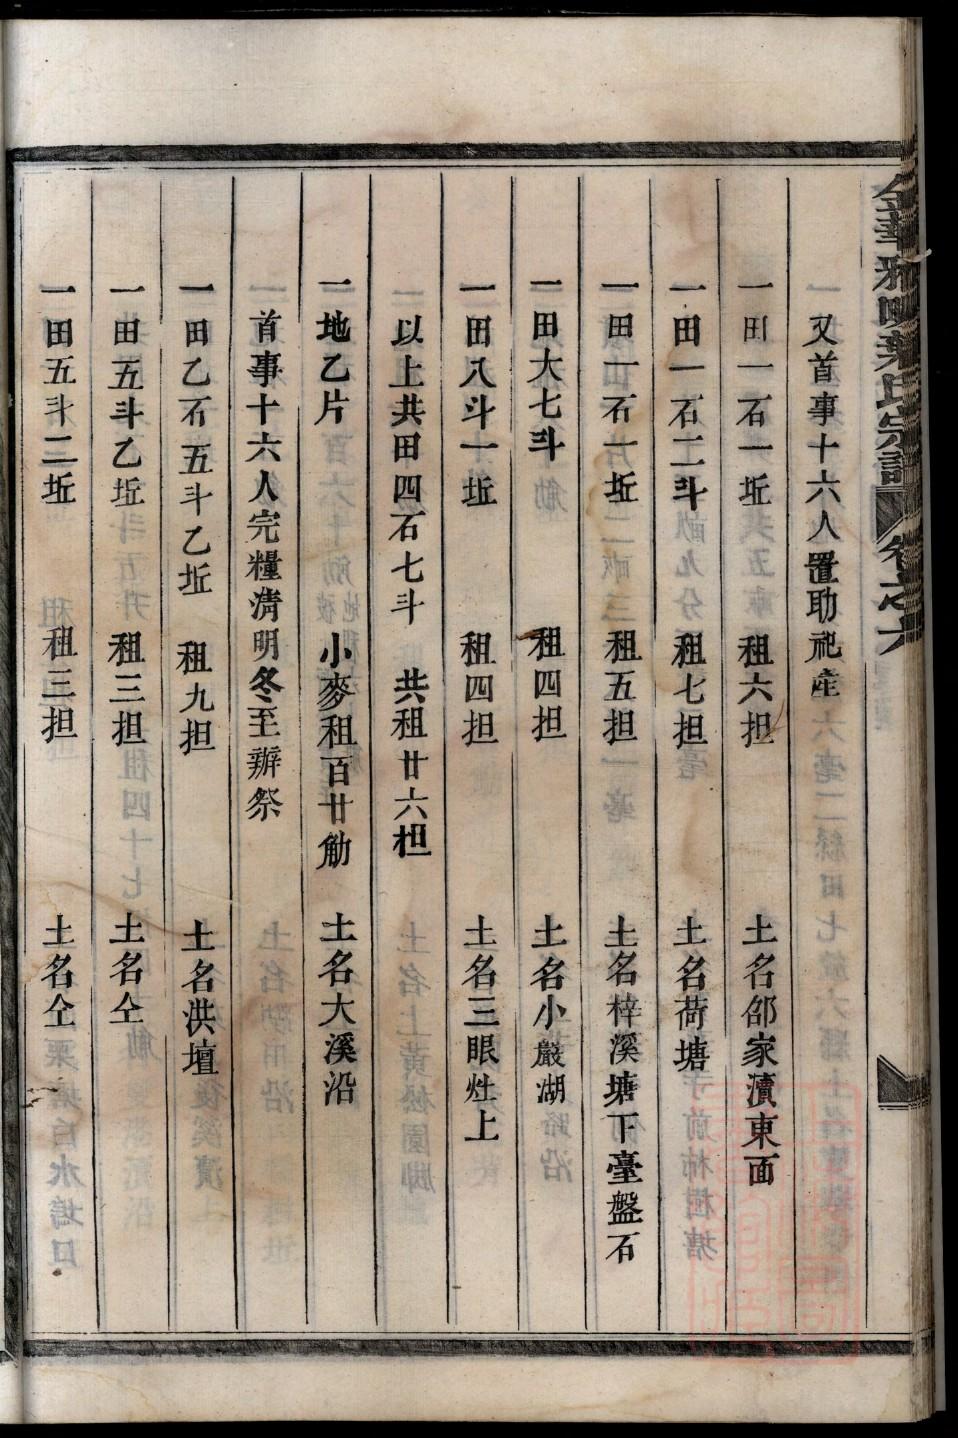 金華雅畈葉氏宗譜 卷之六
又首事十六人置助祀產
一田一石一坵 租六担 土名邵家瀆東面
一田一石二斗 租七担 土名荷塘
一田一石一坵 租五担 土名梓溪塘下臺盤石
一田大七斗 租四担 土名小嚴湖
一田八斗一坵 租四担 土名三眼灶上
以上共田四石七斗 共租廿六担
一地乙片 小麥租百廿觔 土名大溪沿
一首事十六人完糧清明冬至辦祭
一田乙石五斗乙坵 租九担 土名洪壇
一田五斗乙坵 租三担 土名仝
一田五斗二坵 租三担 土名仝